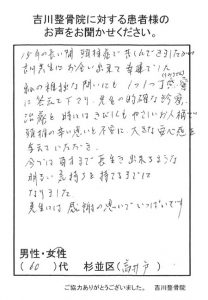 吉川整骨院に対する患者様の
お声をお聞かせください。
18年の長い間 頚椎症で苦しんできましたが
吉川先生にお会い出来て幸運でした
私の稚拙な問いにも 1つ1つ丁寧
に答えて下さり、先生の的確な診察
治療と 時にはきびしくもやさしいお人柄で
頚椎の辛い思いと不安に、大きな安心感を
与えていただき、
今では 百才まで長生き出来るような
明るい気持を持てるまでに
なりました。
先生には 感謝の思いでいっぱいです
男性・女性
(60)代 杉並区(高井戸)
ご協力ありがとうございました。 吉川整骨院